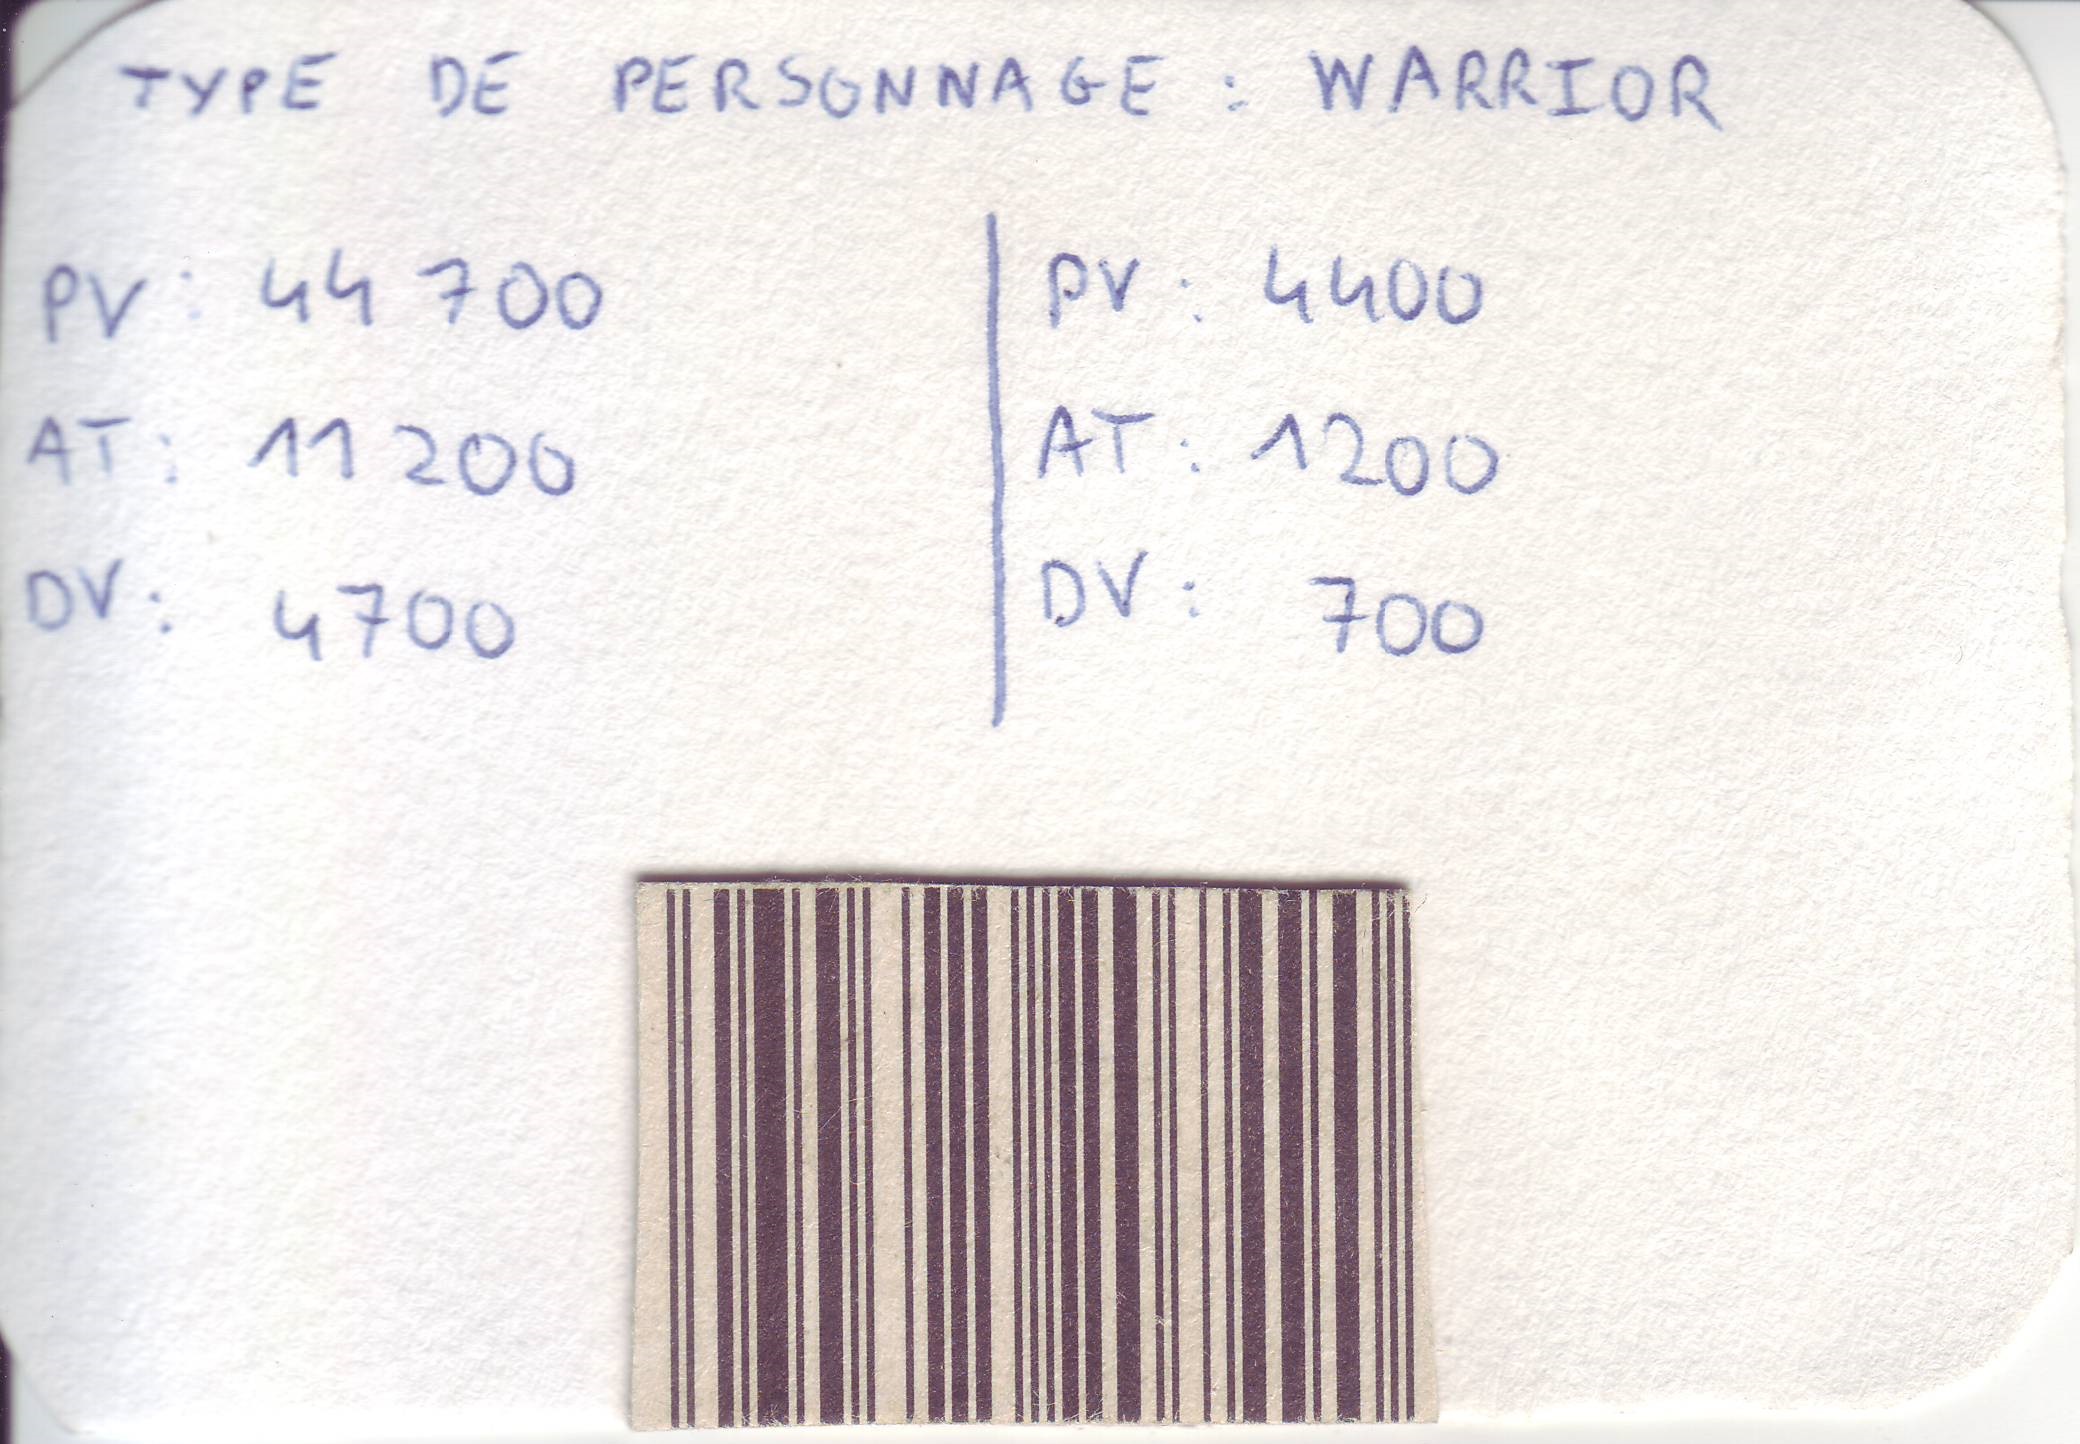 TYPE DE PERSONNAGE : WARRIOR
PV : 44 700
AT : 11 200
DV : 4700
PV : 4400
AT : 1200
DV : 700